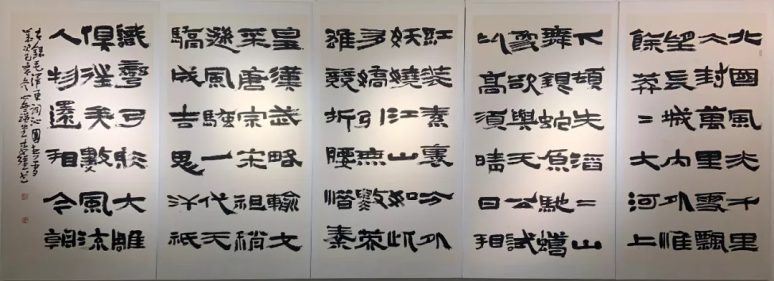 北國風光千里
冰封萬里雪飄
望長城內外惟
餘莽=大河上
下頓失滔=山
舞銀蛇原馳蠟
象欲與天公試
比高須晴日看
紅裝素裹分外
妖嬈江山如此
多嬌引無數英
雄競折腰惜秦
皇漢武略輸文
采唐宗宋祖稍
遜風騷一代天
驕成吉思汗祇
識彎弓射大雕
俱往矣數風流
人物還看今朝
毛澤東詞沁園春雪